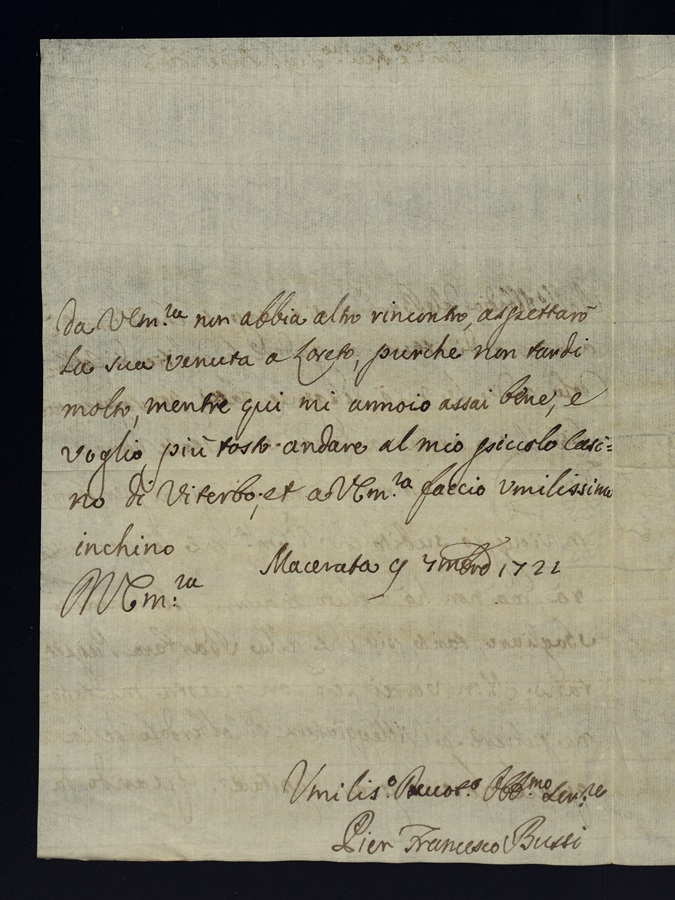 Da VEm.za non abbia altro rincontro, aspettarò
la sua venuta a Loreto, purche non tardi
molto, mentre qui mi annoio assai bene, e
voglio più tosto andare al mio piccolo Casi=
no di Viterbo; et a VEm.za faccio Vmilissimo
inchino
Macerata 9 7mbro 1722
VEm.za
Vmilis.o Deuot.o Obb.mo Ser.re
Pier Francesco Bussi